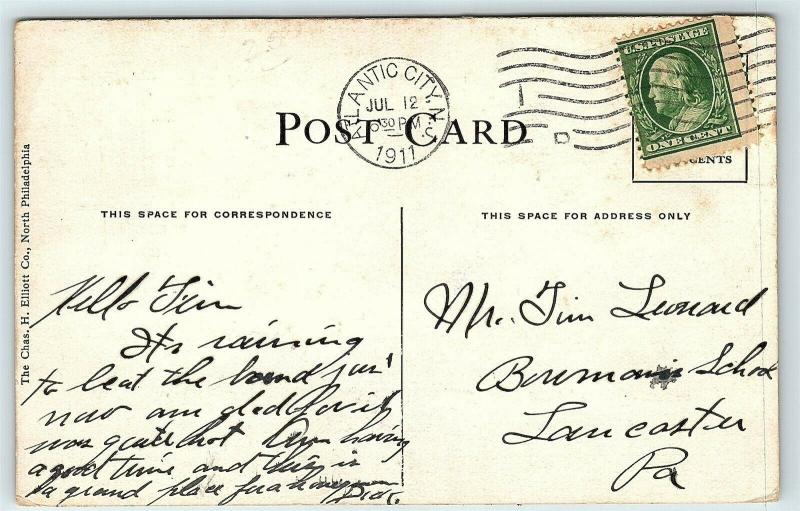 ATLANTIC CITY, N.
JUL 12
30 PM
1911
U.S. POSTAGE
ONE CENT
POST CARD
CENTS
THIS SPACE FOR CORRESPONDENCE
THIS SPACE FOR ADDRESS ONLY
The Chas. H. Elliott Co., North Philadelphia
Hello Jim
Its raining
to beat the band just
now am glad for it
was quite hot Am having
a good time and this is
a grand place for a honeymoon
Mr. Jim Leonard
Bowmans School
Lancaster
Pa